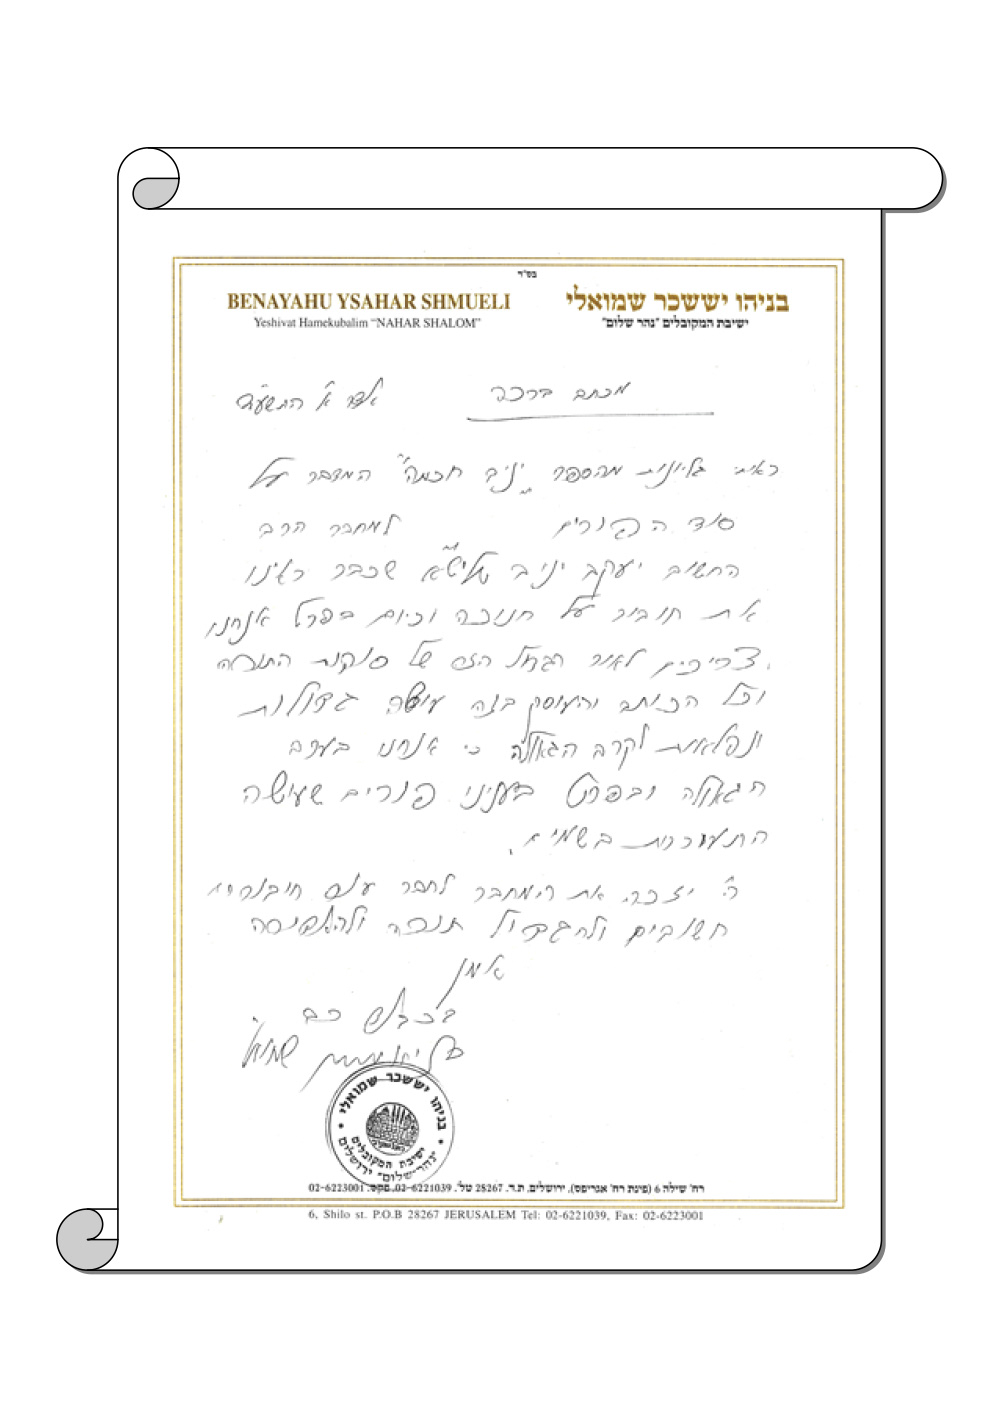 בס"ד
BENAYAHU YSAHAR SHMUELI בניהו יששכר שמואלי
Yeshivat Hamekubalim “NAHAR SHALOM” ישיבת המקובלים "נהר שלום"
מכתב ברכה אדר א' התשע"ד
ראיתי גליונות מהספר "יניב חכמה" המדבר על
סוד הפורים למחבר הרב
החשוב יעקב יניב שליט"א שכבר ראינו
את חוביר על חנוכה וכיום בפרט אנחנו
צריכים לאור הגדול הזה של פנקת התורה
וכל הכותב והעוסק בזה עושה גדולות
ונפלאות לקרב הגאולה כי אנחנו בערב
הגאולה ובפרט בעניני פורים שעושה
התעוררות בשמים.
ה' יזכה את המחבר לחבר עוד חיבורים
חשובים ולהגדיל תורה ולהאדירה
אמן
בכבוד רב
בניהו שמואלי
בניהו יששכר שמואלי
ישיבת המקובלים
"נהר שלום" ירושלים
רח' שילה 6 (פינת רח' אגריפס), ירושלים, ת.ד. 28267 טל'. 02-6221039, פקס. 02-6223001
6, Shilo st. P.O.B 28267 JERUSALEM Tel: 02-6221039, Fax: 02-6223001